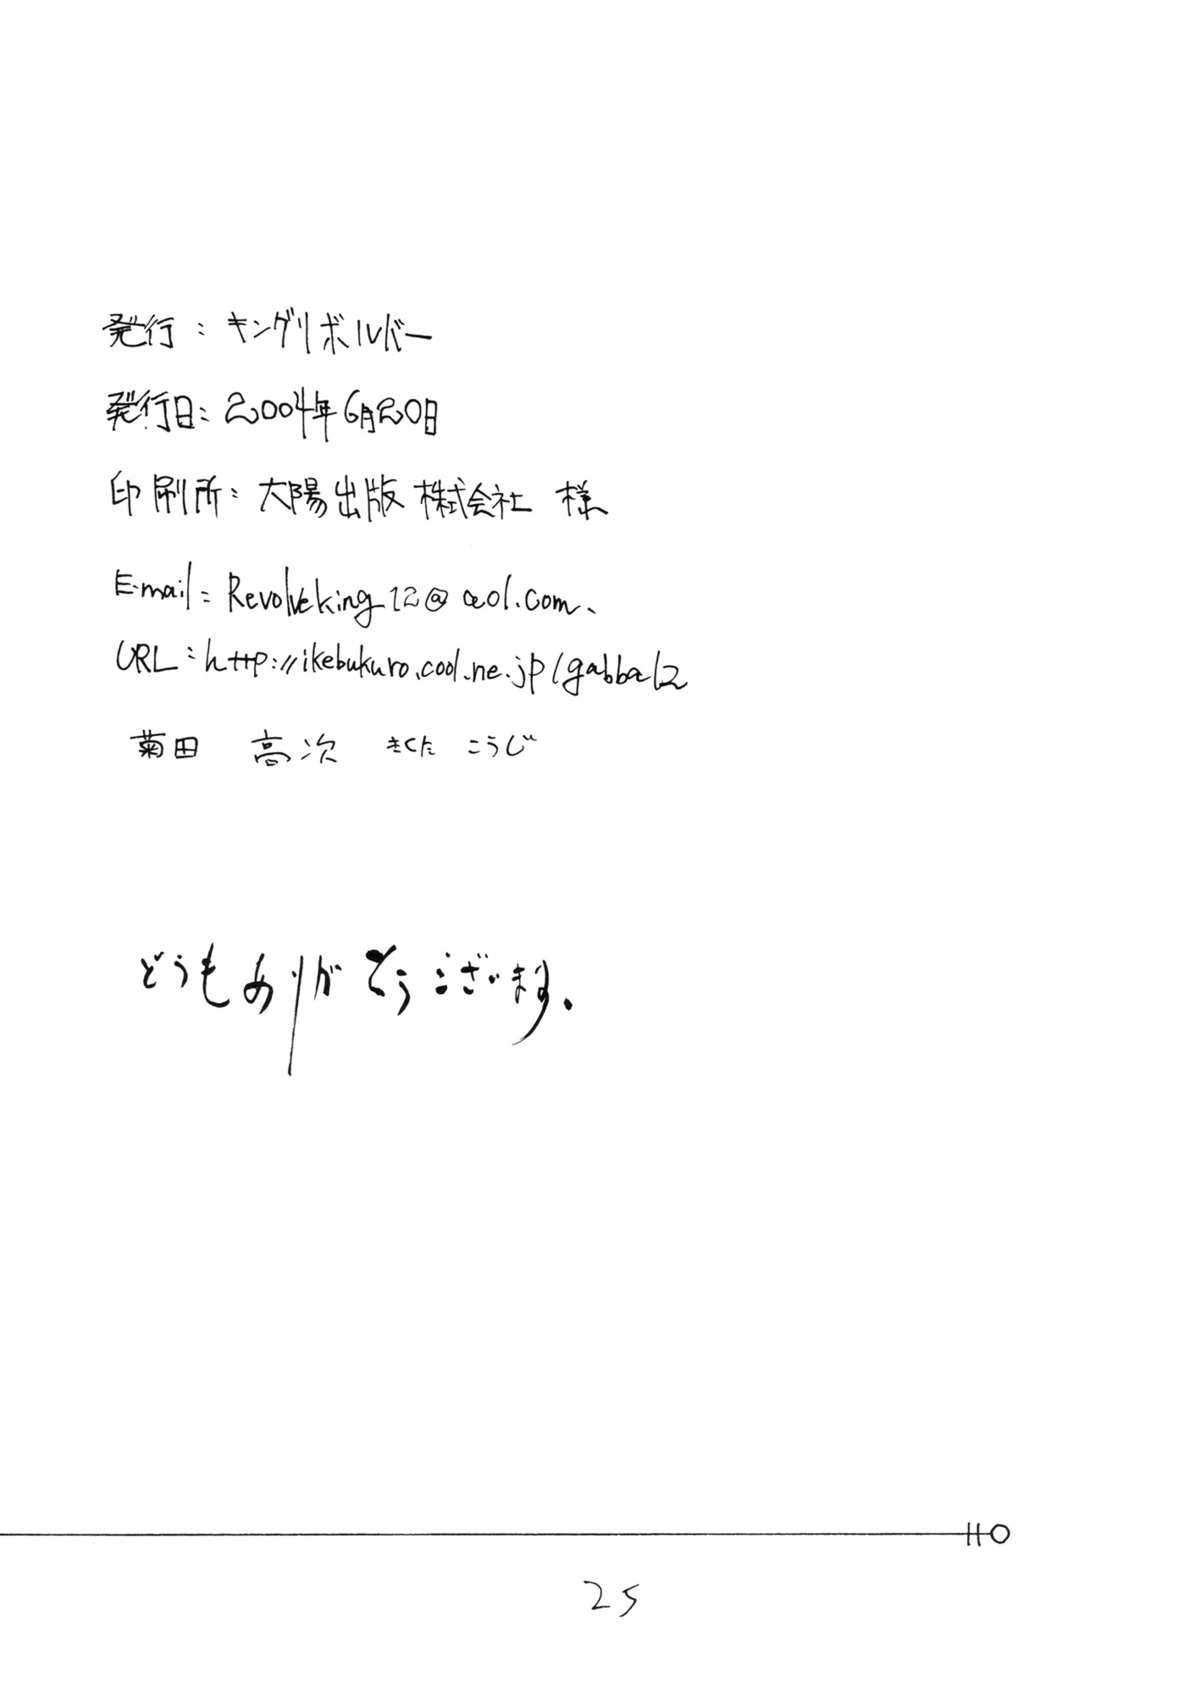 発行：キングリボルバー
発行日：2004年6月20日
印刷所：大陽出版 株式会社 様
E-mail：Revolveking12@aol.com、
URL：http://ikebukuro.cool.ne.jp/gabba12
菊田 高次 きくた こうじ
どうもありがとうございます、
25